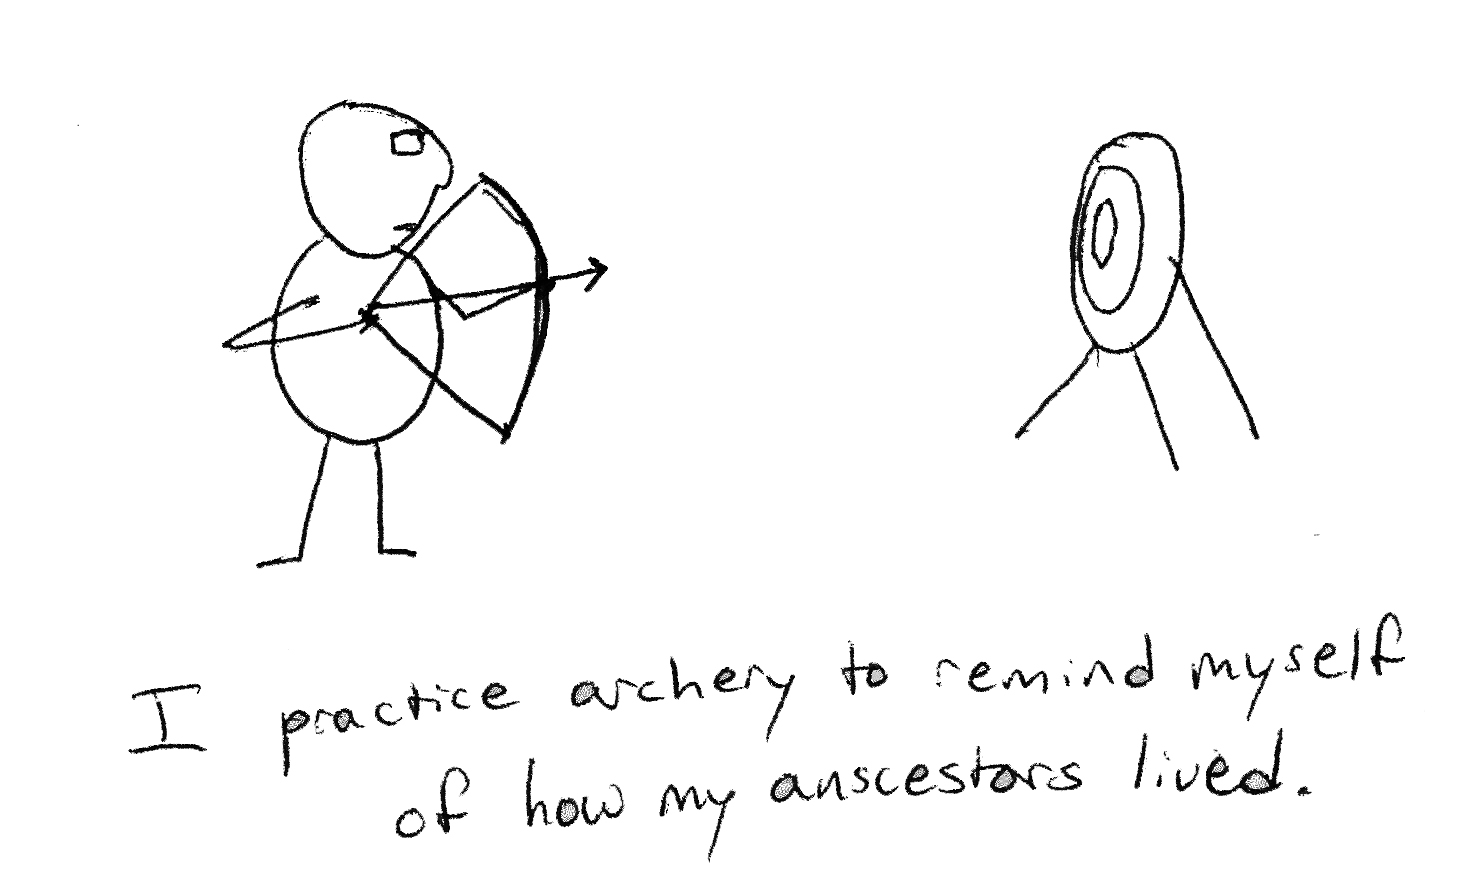 I practice archery to remind myself
of how my anscestors lived.